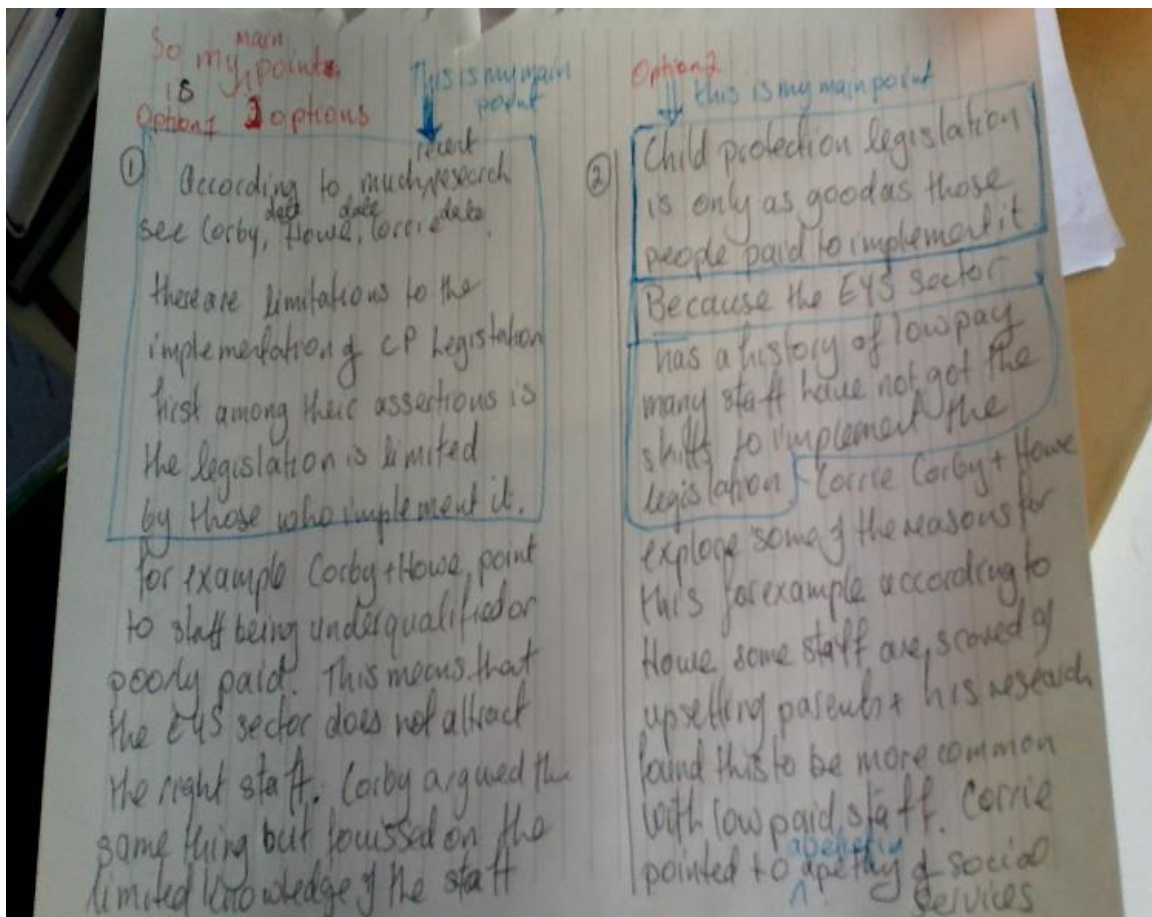 So my main points.
is
Option 1 2 options
This is my main
point
①
According to much recent research
see Corby, date Howe, date Corrie date.
there are limitations to the
implementation of CP Legislation
first among their assertions is
the legislation is limited
by those who implement it.
for example Corby + Howe, point
to staff being underqualified or
poorly paid. This means that
the EYS sector does not attract
the right staff. Corby argued the
same thing but focussed on the
limited knowledge of the staff
Option 2
this is my main point
②
Child protection legislation
is only as good as those
people paid to implement it
Because the EYS Sector
has a history of low pay
many staff have not got the
skills to implement the
legislation Corrie Corby + Howe
explore some of the reasons for
this for example according to
Howe some staff are scared of
upsetting parents + his research
found this to be more common
with low paid staff. Corrie
pointed to apethy of social
Services